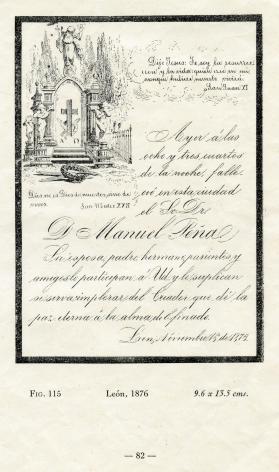 Dijo Jesus: Yo soy la resurrec
cion y la vida: quien cree en mi
aunque hubiere muerto vivirá.
San Juan XI
Ayer á las
ocho y tres cuartos
de la noche, falle
ció en esta ciudad
el Sr. Dr.
Dios no es Dios de muertos, sino de
vivos.
San Mateo XXII
D. Manuel Peña
Su esposa, padre, hermanos parientes y
amigos lo participan á Vd. y le suplican
se sirva implorar del Criador que dé la
paz eterna á la alma del finado.
Leon,
FIG. 115 León, 1876 9.6 x 13.5 cms.
— 82 —